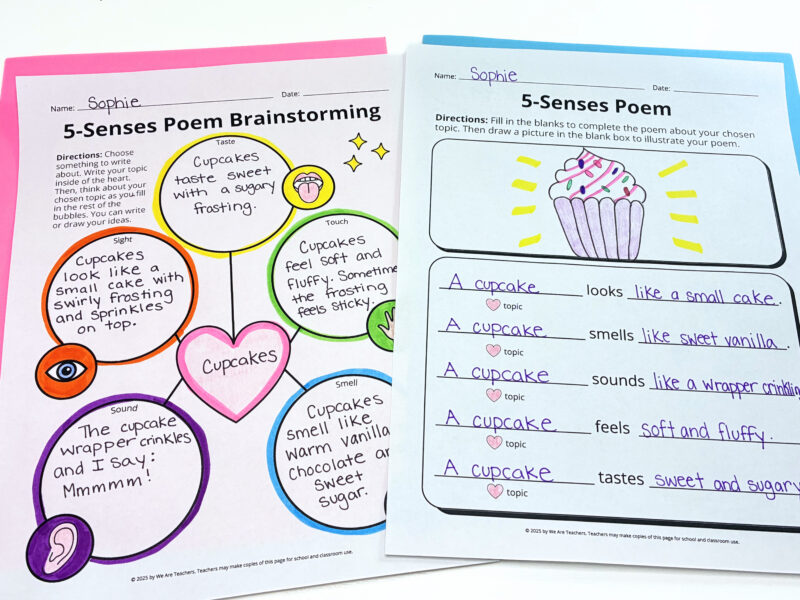 Name: Sophie Date:
5-Senses Poem Brainstorming
Directions: Choose
something to write
about. Write your topic
inside of the heart.
Then, think about your
chosen topic as you fill
in the rest of the
bubbles. You can write
or draw your ideas.
Taste
Cupcakes
taste sweet
with a sugary
frosting.
Sight
Cupcakes
look like a
small cake with
swirly frosting
and sprinkles
on top.
Touch
Cupcakes
feel soft and
fluffy. Sometime
the frosting
feels sticky.
Cupcakes
Sound
The cupcake
wrapper crinkles
and I say:
Mmmmm!
Smell
Cupcakes
smell like
warm vanilla
chocolate
sweet
sugar.
© 2025 by We Are Teachers. Teachers may make copies of this page for school and classroom use.
Name: Sophie Date:
5-Senses Poem
Directions: Fill in the blanks to complete the poem about your chosen
topic. Then draw a picture in the blank box to illustrate your poem.
A cupcake looks like a small cake.
topic
A cupcake smells like sweet vanilla.
topic
A cupcake sounds like a wrapper crinkling
topic
A cupcake feels soft and fluffy.
topic
A cupcake tastes sweet and sugary
topic
© 2025 by We Are Teachers. Teachers may make copies of this page for school and classroom use.